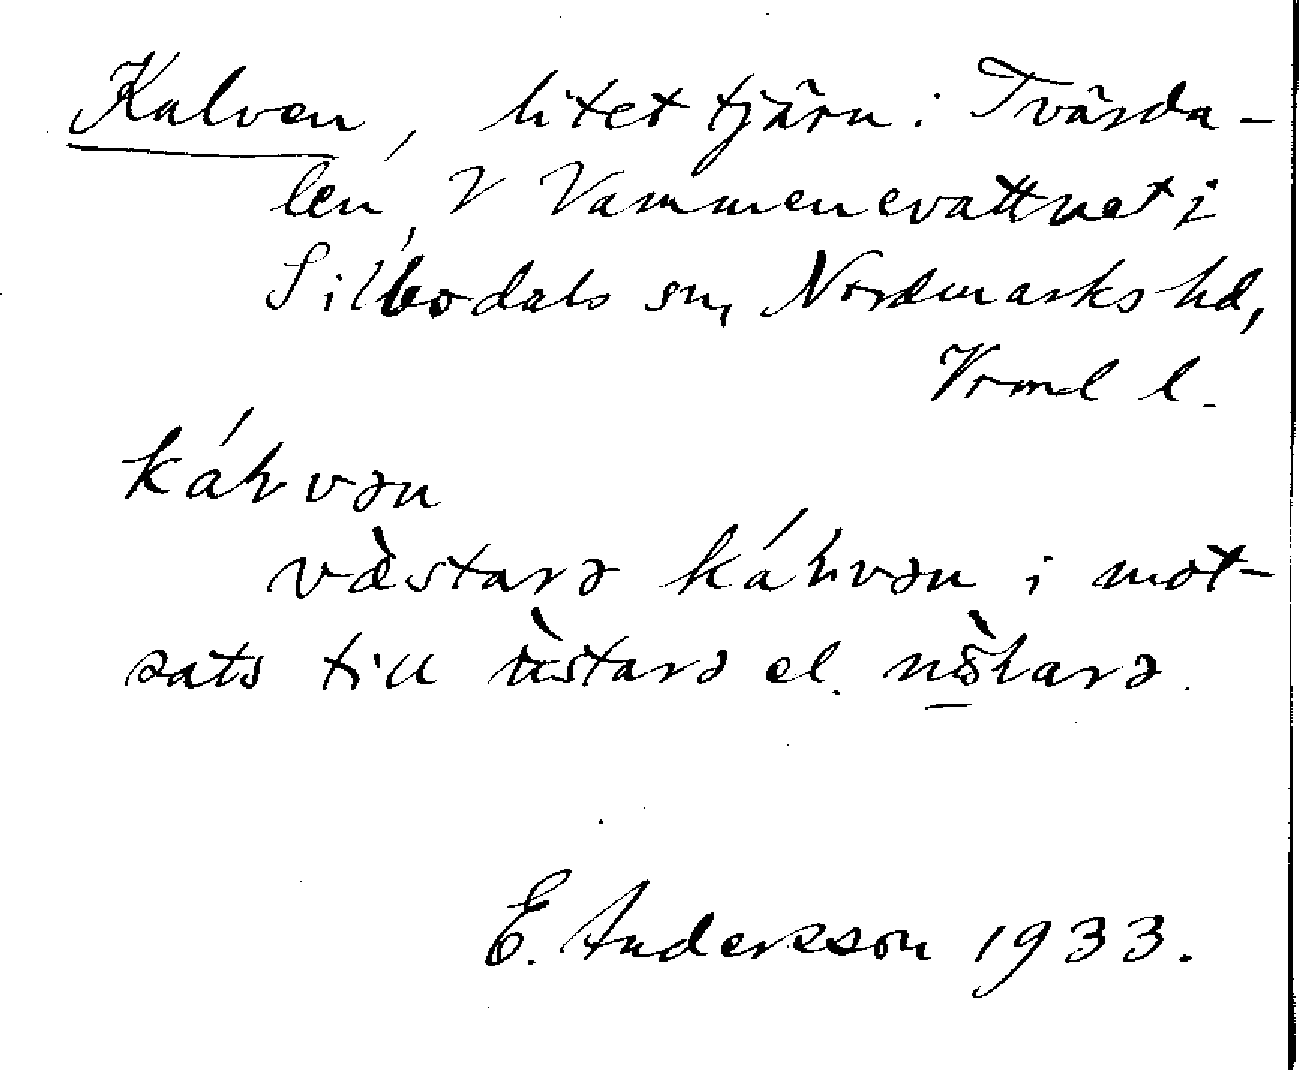 Kalven, litet tjärn i Tvärda-
len, V Vammenevattnet i
Silbodals sn, Nordmarks hd,
Vrml l.
káḷvən
væ̀starə káḷvən i mot-
sats till
el.
E. Andersson 1933.